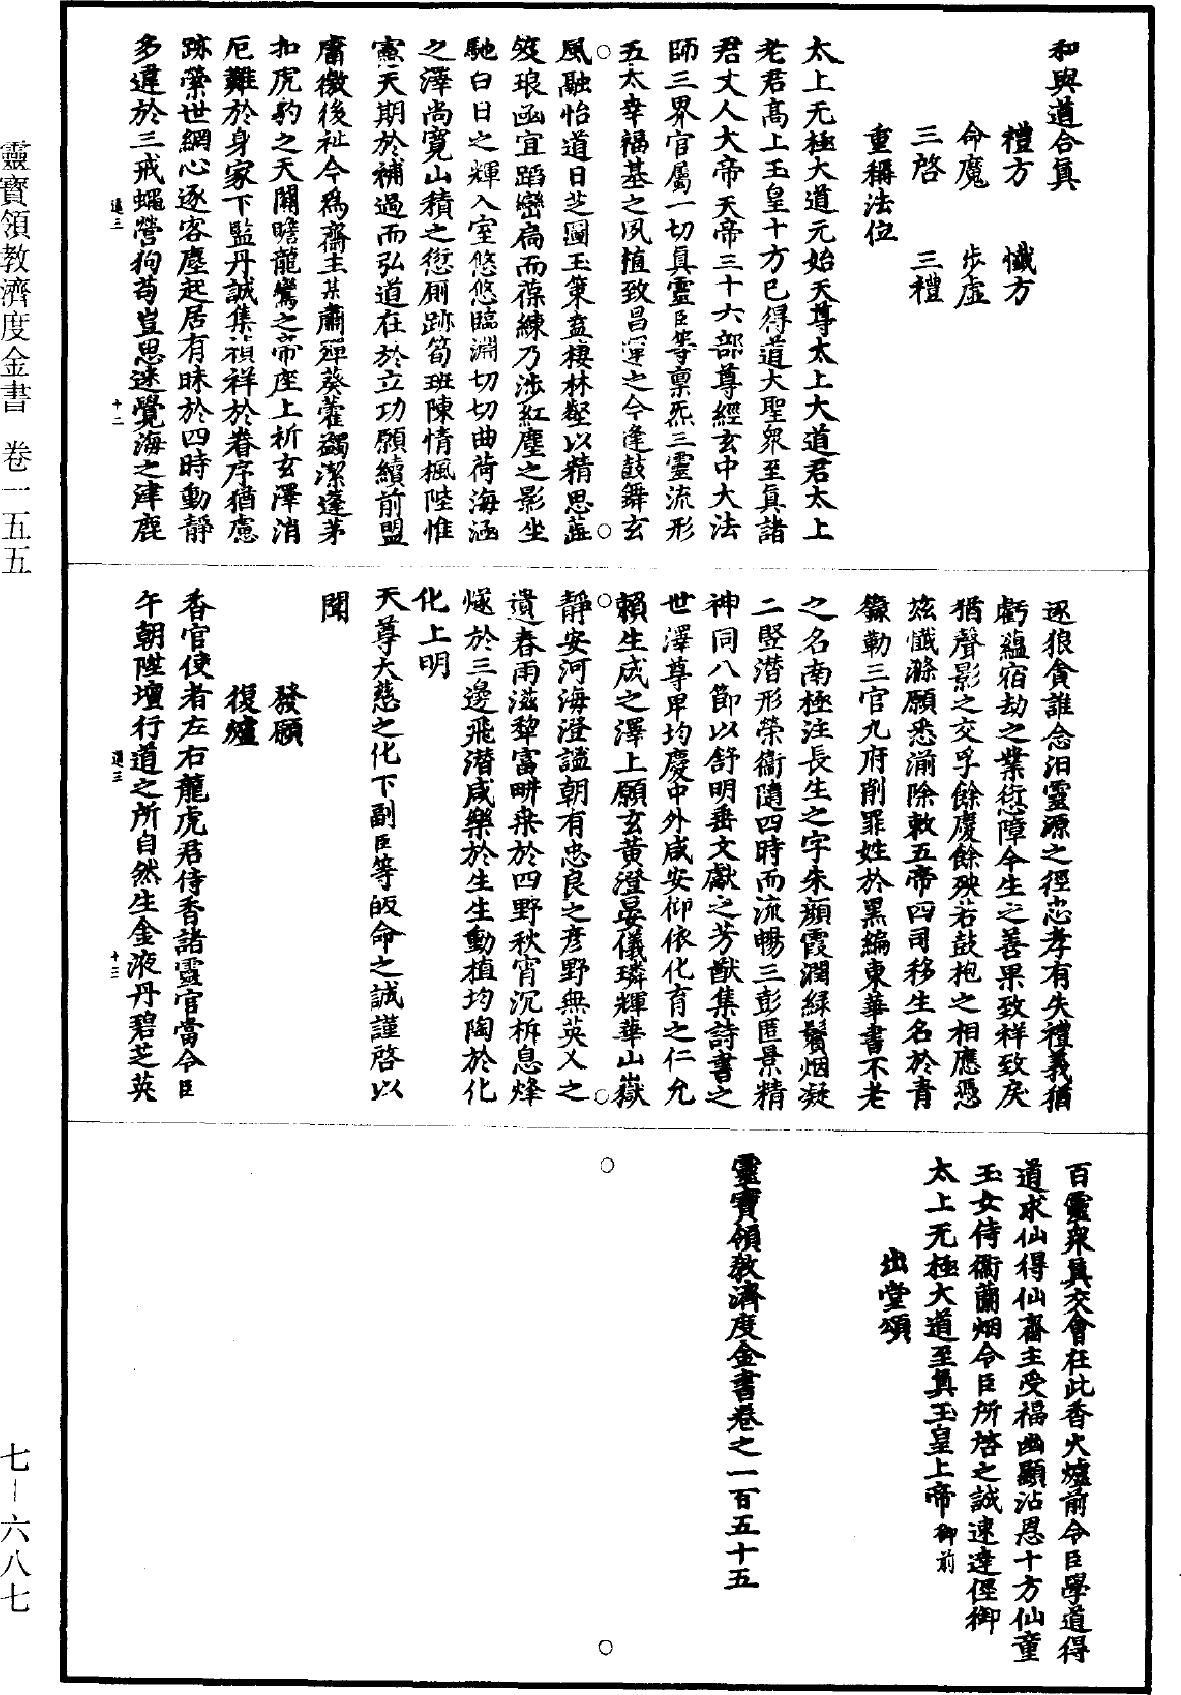 和與道合眞
禮方　懺方
命魔　步虛
三啓　三禮
重稱法位
太上无極大道元始天尊太上大道君太上
老君高上玉皇十方已得道大聖衆至眞諸
君丈人大帝天帝三十六部尊經玄中大法
師三界官屬一切眞靈臣等稟炁三靈流形
五太幸福基之夙植致昌運之今逢鼓舞玄
風融怡道日芝圖玉策益棲林壑以精思蘂
笈琅函宜蹈巒扃而葆練乃涉紅塵之影坐
馳白日之輝入室悠悠臨淵切切曲荷海涵
之澤尚寬山積之愆厠跡筍班陳情楓陛惟
憲天期於補過而弘道在於立功願續前盟
庸徼後祉今爲齋主某肅殫葵藿蠲潔蓬茅
扣虎豹之天關瞻龍鸞之帝座上祈玄澤消
厄難於身家下監丹誠集禎祥於眷序猶慮
跡縈世網心逐客塵起居有昧於四時動靜
多違於三戒蠅營狗苟豈思迷覺海之津鹿
逐狼貪誰念汨靈源之徑忠孝有失禮義猶
虧蘊宿劫之業愆障今生之善果致祥致戾
猶聲影之交孚餘慶餘殃若鼓抱之相應憑
兹懺滌願悉湔除敕五帝四司移生名於青
籙勒三官九府削罪姓於黑編東華書不老
之名南極注長生之字朱顏霞潤綠鬢烟凝
二竪潜形榮衞隨四時而流暢三彭匿景精
神同八節以舒明垂文獻之芳猷集詩書之
世澤尊卑均慶中外咸安仰依化育之仁允
賴生成之澤上願玄黃澄晏儀璘輝華山嶽
靜安河海澄謐朝有忠良之彦野無英乂之
遺春雨滋犂富畊耒於四野秋宵沉柝息烽
燧於三邊飛潜咸樂於生生動植均陶於化
化上明
天尊大慈之化下副臣等皈命之誠謹啓以
聞
發願
復爐
香官使者左右龍虎君侍香諸靈官當令臣
午朝陞壇行道之所自然生金液丹碧芝英
百靈衆眞交會在此香火爐前令臣學道得
道求仙得仙齋主受福幽顯沾恩十方仙童
玉女侍衞蘭烟令臣所啓之誠速達徑御
太上无極大道至眞玉皇上帝御前
出堂頌
靈寶領教濟度金書卷之一百五十五
靈寶領教濟度金書　卷一五五
七－六八七